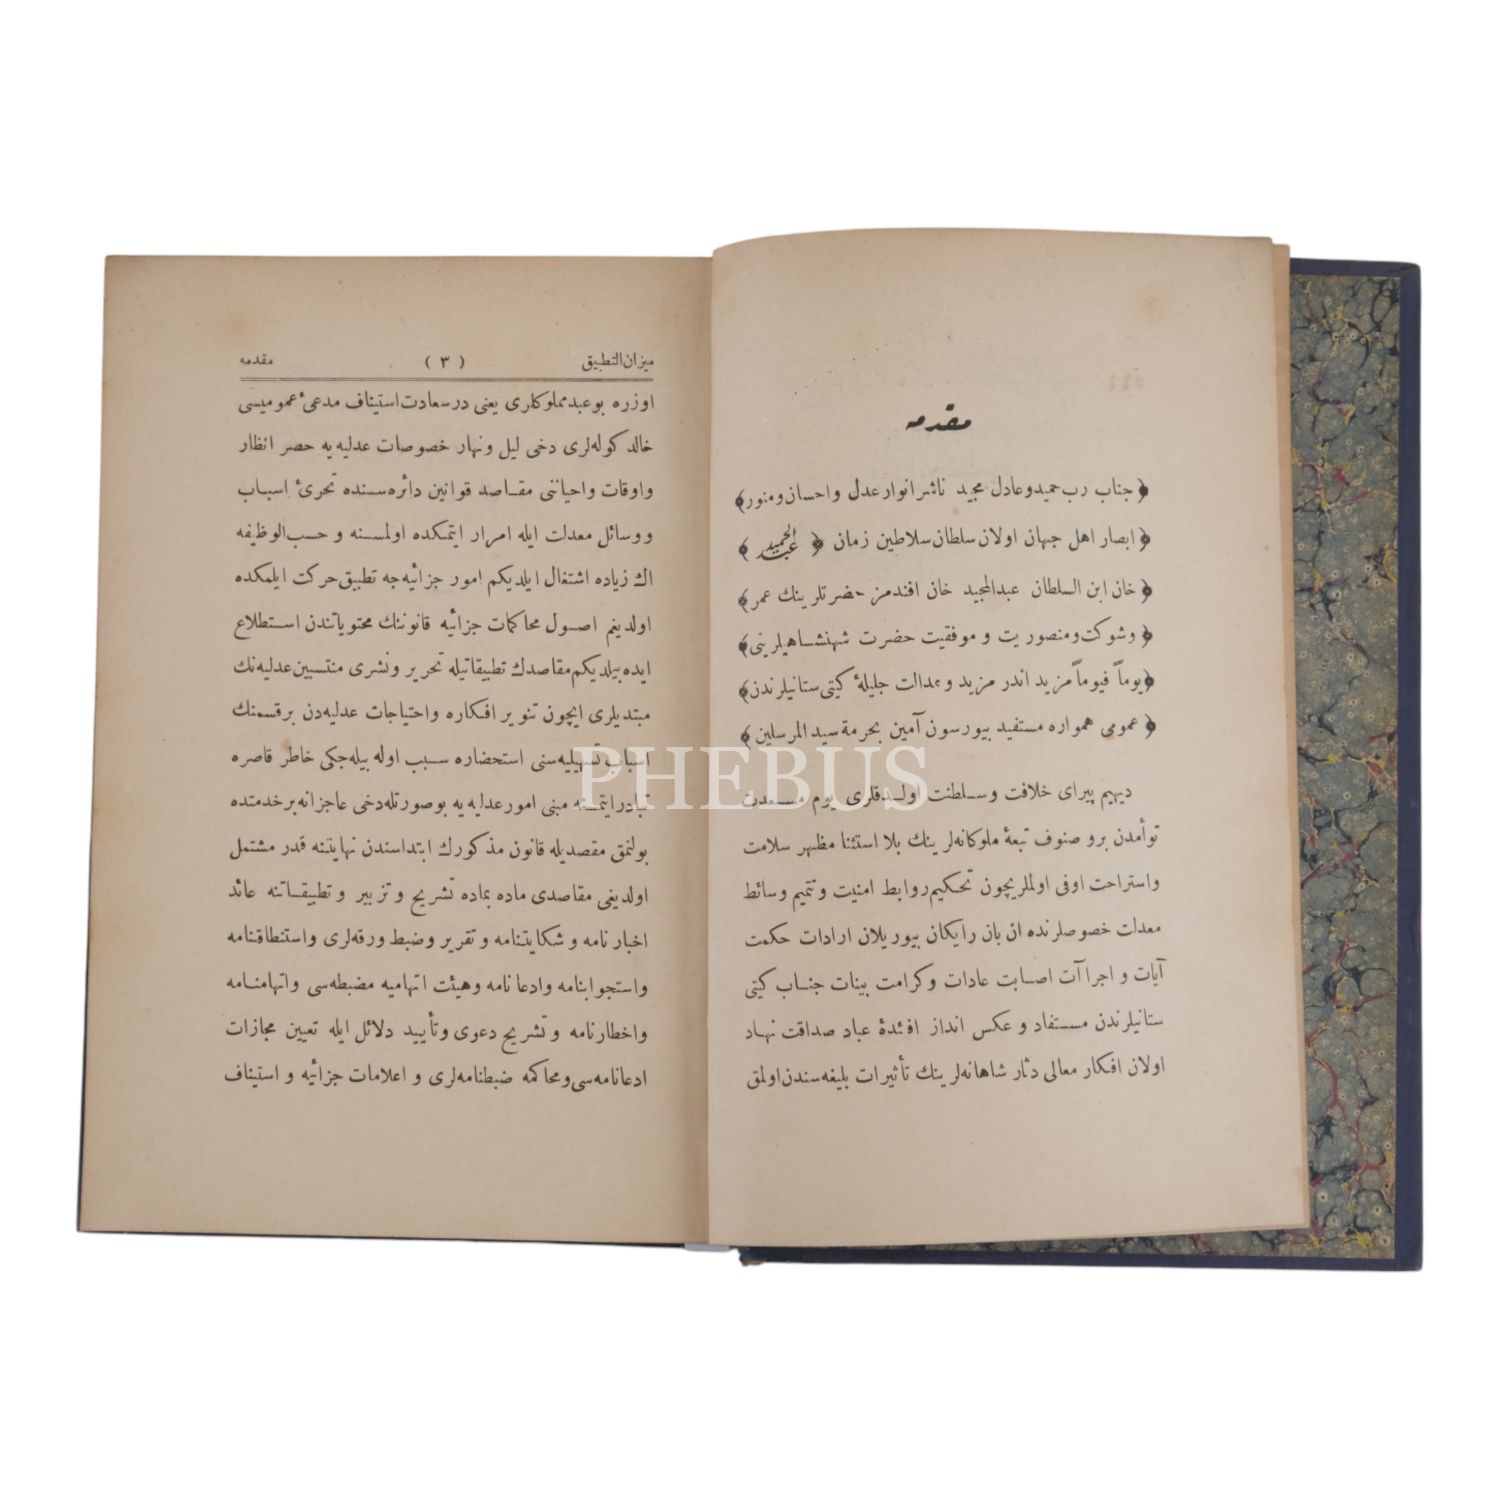 مقدمه
﴿ جناب رب حمید و عادل مجید ناشر انوار عدل و احسان و منور ﴾
﴿ ابصار اهل جهان اولان سلطان سلاطین زمان ﴿ عبدالحمید ﴾
﴿ خان ابن السلطان عبدالمجید خان افندمز حضرتلرینك عمر ﴾
﴿ و شوکت و منصوریت و موفقیت حضرت شهنشاهیلرینی ﴾
﴿ یوماً فیوماً مزید اندر مزید و عدالت جلیلهٔ کیتی ستانیلرندن ﴾
﴿ عمومی همواره مستفید بیورسون آمین بحرمة سید المرسلین ﴾
دیهیم پیرای خلافت و سلطنت اولدقلری یوم مسعدت
توأمدن برو صنوف تبعهٔ ملوکانه‌لرینك بلا استثنا مظهر سلامت
و استراحت اوفی اولملریچون تحکیم روابط امنیت و تتمیم وسائط
معدلت خصوصلرنده ان بان رایکان بیوریلان ارادات حکمت
آیات و اجراآت اصابت عادات و کرامت بینات جناب کیتی
ستانیلرندن مستفاد و عکس انداز افئدهٔ عباد صداقت نهاد
اولان افکار معالی دثار شاهانه‌لرینك تأثیرات بلیغه‌سندن اولمق
میزان التطبیق ( ٣ ) مقدمه
اوزره بو عبد مملوکلری یعنی درسعادت استیناف مدعیٔ عمومیسی
خالد کوله‌لری دخی لیل و نهار خصوصات عدلیه یه حصر انظار
و اوقات و احیاننی مقاصد قوانین دائره‌سنده تحریٔ اسباب
و وسائل معدلت ایله امرار ایتمکده اولمسنه و حسب الوظیفه
اك زیاده اشتغال ایلدیکم امور جزائیه‌جه تطبیق حرکت ایلمکده
اولدیغم اصول محاکمات جزائیه قانوننك محتویاتندن استطلاع
ایده بیلدیکم مقاصدك تطبیقاتیله تحریر و نشری منتسبین عدلیه‌نك
مبتدیلری ایچون تنویر افکاره و احتیاجات عدلیه‌دن بر قسمنك
اسباب تسهیلیه‌سنی استحضاره سبب اوله بیله‌جکی خاطر قاصره
تبادر ایتمسنه مبنی امور عدلیه یه بو صورتله دخی عاجزانه بر خدمتده
بولنمق مقصدیله قانون مذکورك ابتداسندن نهایتنه قدر مشتمل
اولدیغی مقاصدی ماده بماده تشریح و تزبیر و تطبیقاتنه عائد
اخبار نامه و شکایتنامه و تقریر و ضبط ورقه‌لری و استنطاقنامه
و استجوابنامه و ادعا نامه و هیئت اتهامیه مضبطه‌سی و اتهامنامه
و اخطارنامه و تشریح دعوی و تأیید دلائل ایله تعیین مجازات
ادعانامه‌سی و محاکمه ضبطنامه‌لری و اعلامات جزائیه و استیناف
PHEBUS